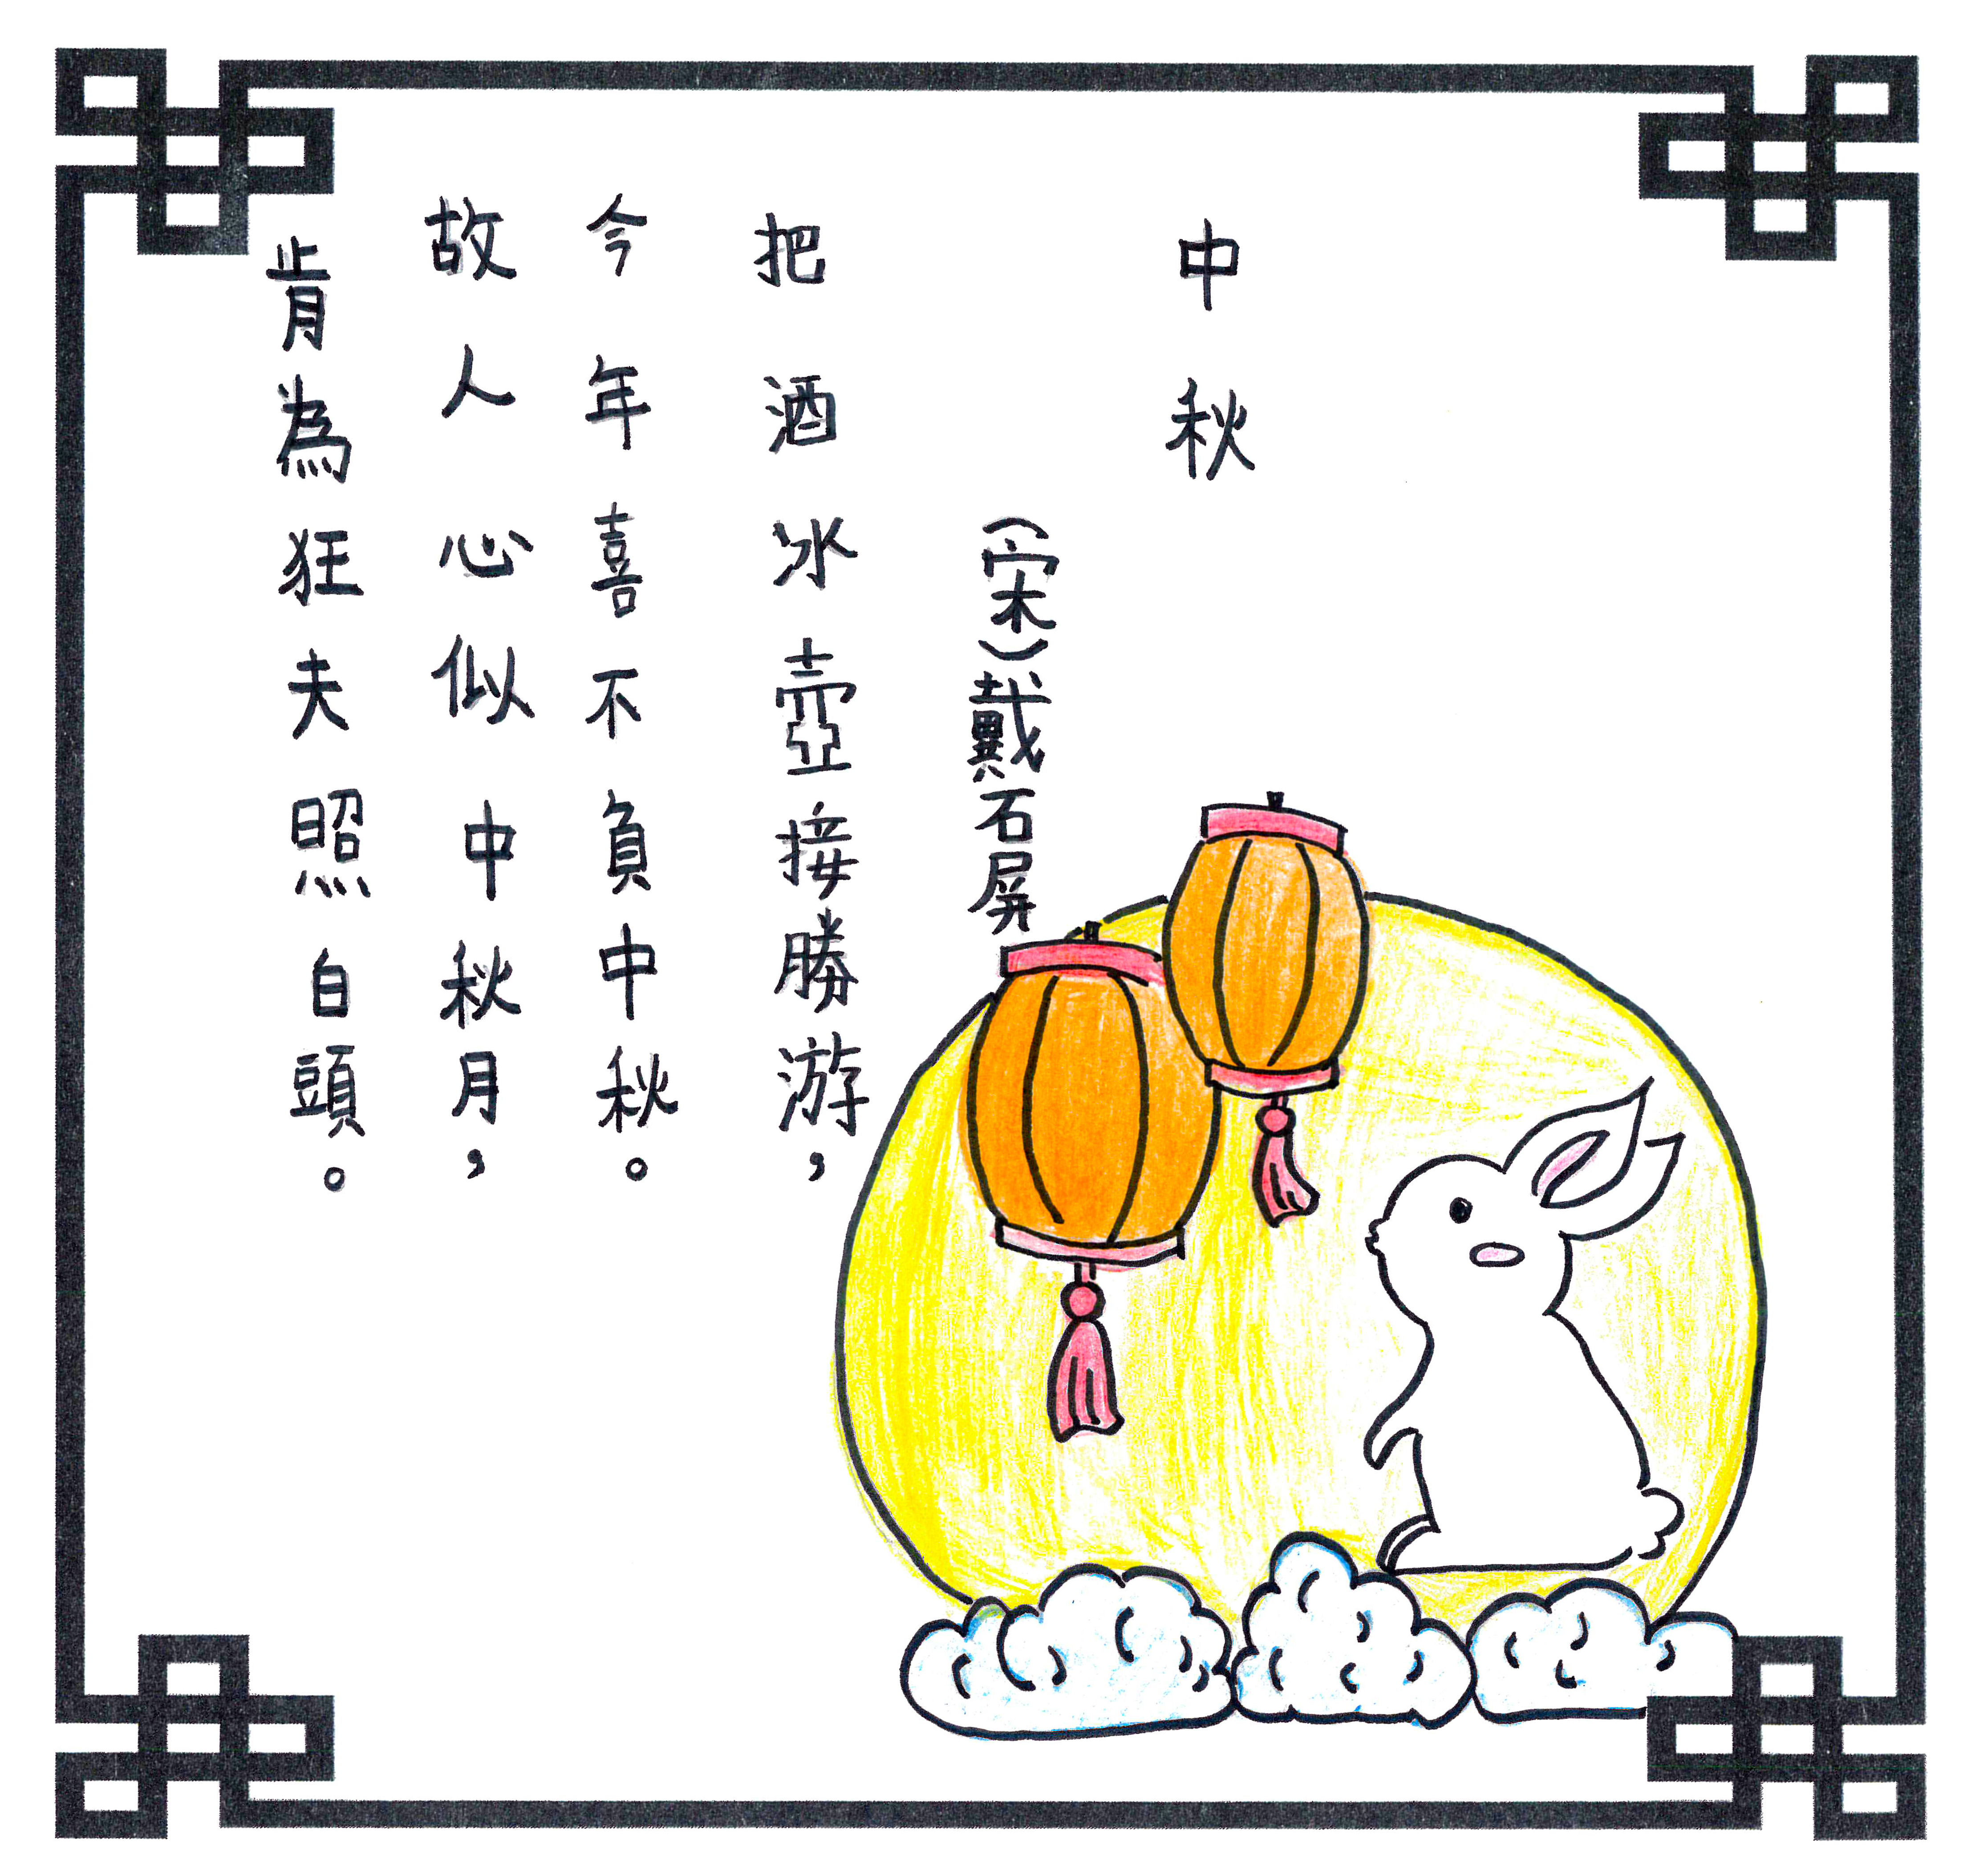 中秋
（宋）戴石屏
把酒冰壺接勝游，
今年喜不負中秋。
故人心似中秋月，
肯為狂夫照白頭。